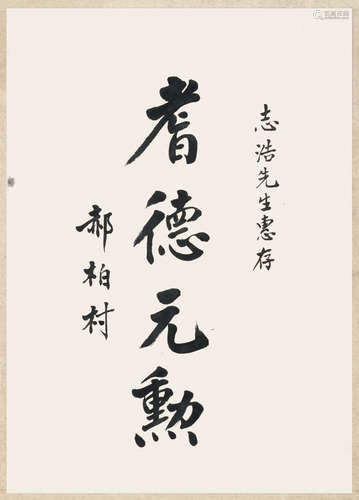 志浩先生惠存
耆德元勳
郝柏村